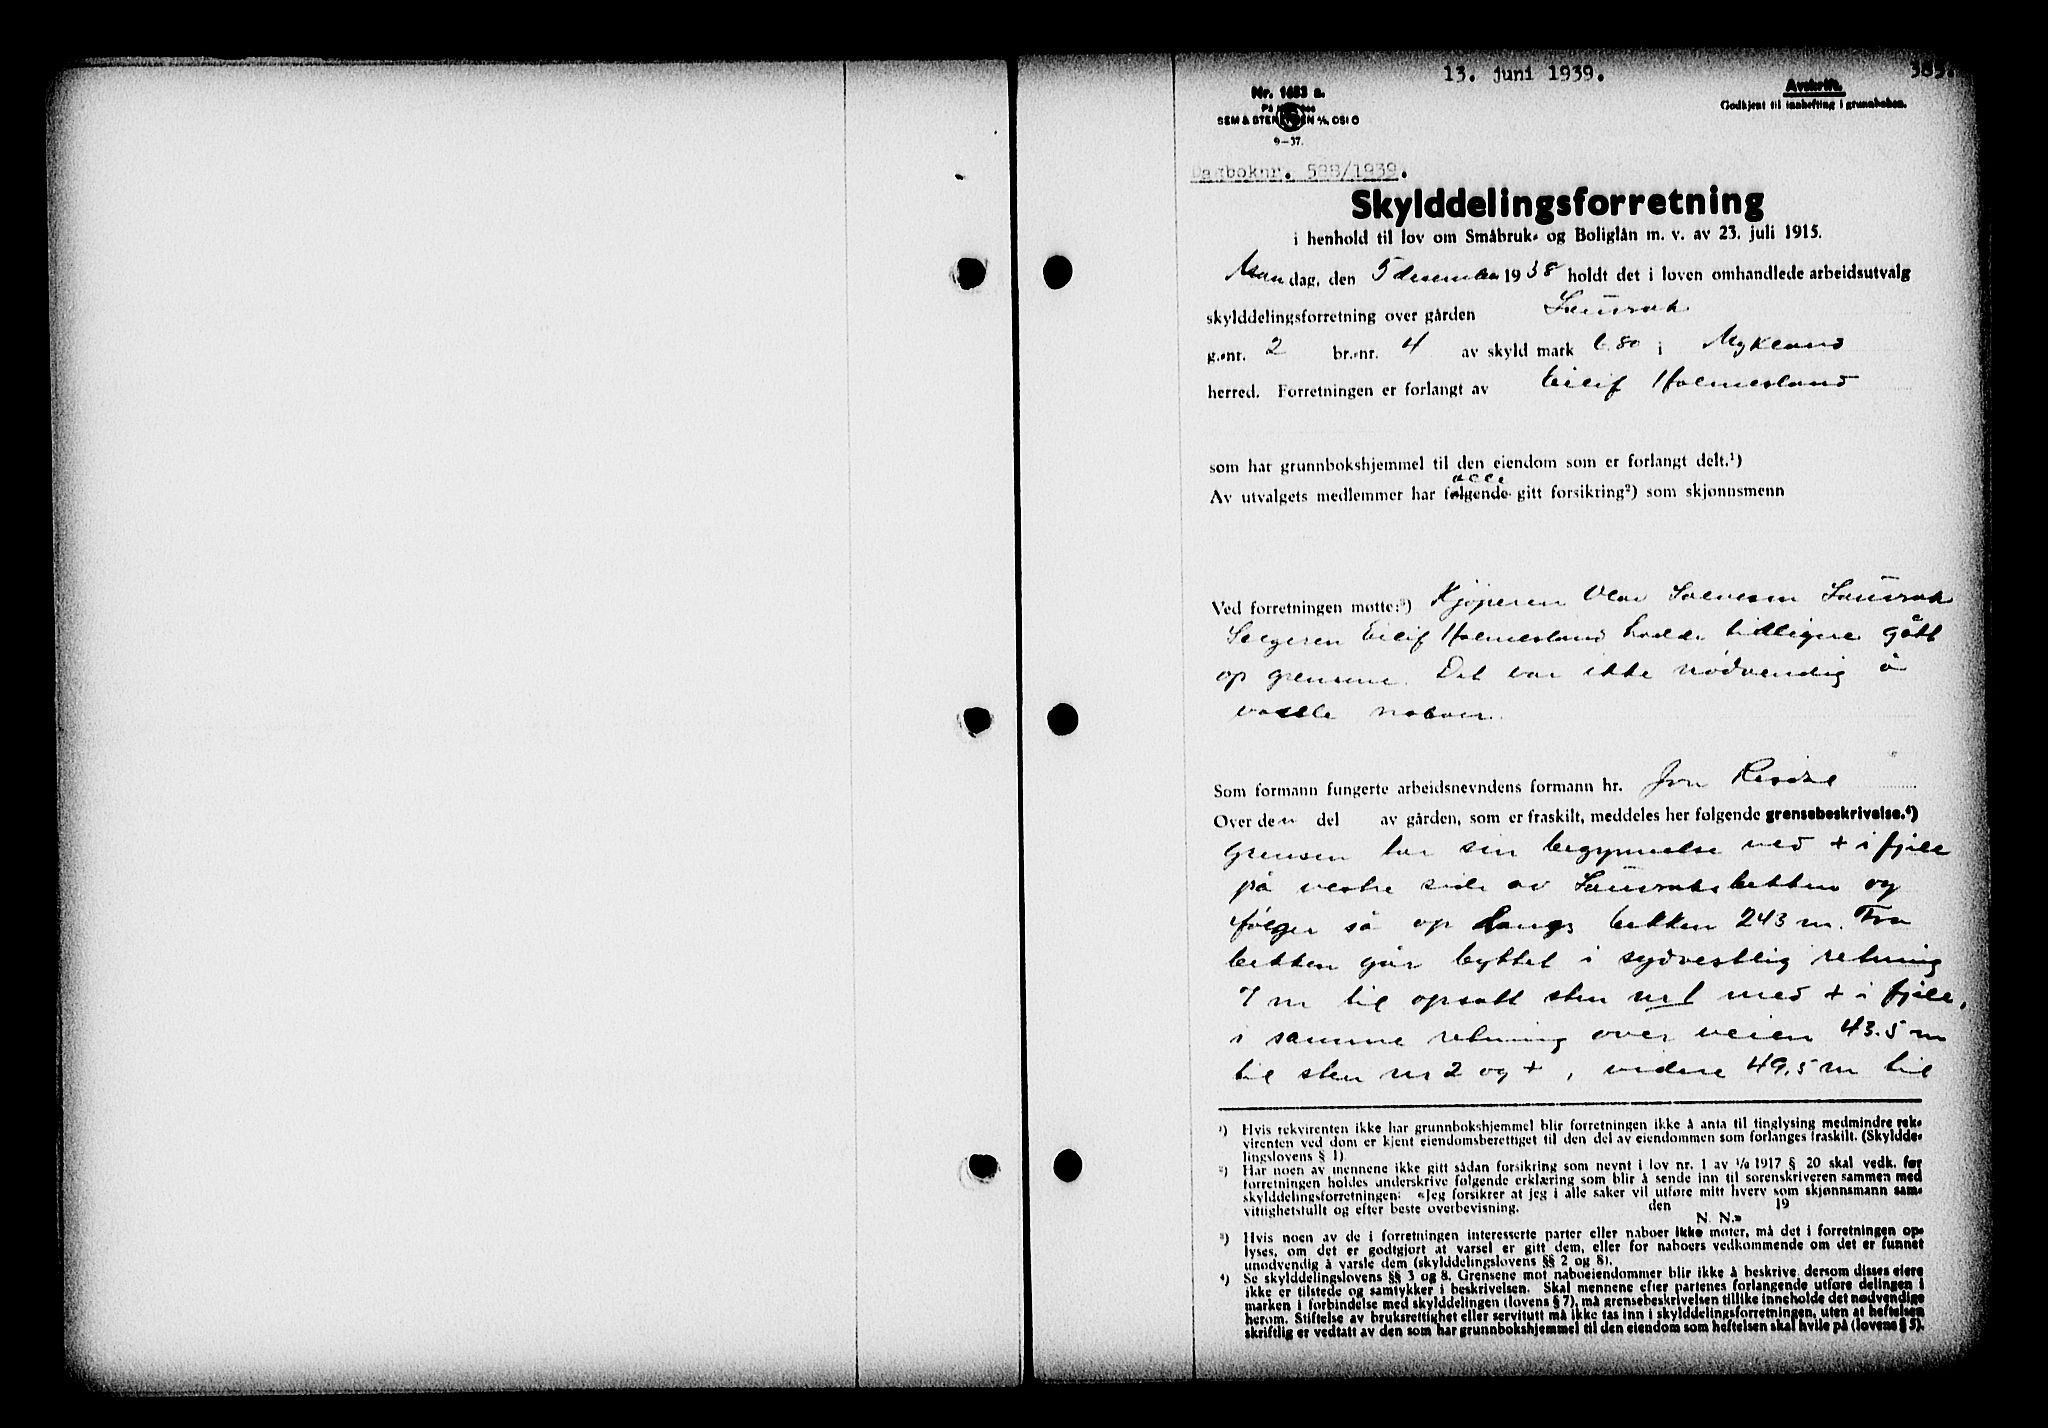 13. juni 1939.
385.
Nr. 1683 a.
Avskrift.
Godkjent til innhefting i grunnboken.
SEM & STENERSEN A/S, OSLO
9-37.
Dagboknr. 588/1939.
Skylddelingsforretning
i henhold til lov om Småbruk- og Boliglån m. v. av 23. juli 1915.
Mandag, den 5 desember 1938 holdt det i loven omhandlede arbeidsutvalg
skylddelingsforretning over gården Saurak
g.-nr. 2 br.-nr. 4 av skyld mark 6.80 i Mykland
herred. Forretningen er forlangt av Eilif Holmesland
som har grunnbokshjemmel til den eiendom som er forlangt delt.¹)
alle
Av utvalgets medlemmer har følgende gitt forsikring²) som skjønnsmenn
Ved forretningen møtte:³) Kjøperen Olav Salvesen Saurak
Selgeren Eilif Holmesland hadde tidligere gått
op grensene. Det var ikke nødvendig å
varsle naboer.
Som formann fungerte arbeidsnevndens formann hr. Jon
Over den del av gården, som er fraskilt, meddeles her følgende grensebeskrivelse.⁴)
Grensen har sin begynnelse ved + i fjell
på vestre side av Sauraksbekken og
følger så op langs bekken 243 m. Fra
bekken går byttet i sydvestlig retning
7 m til opsatt sten nr 1 med + i fjell,
i samme retning over veien 43.5 m
til sten nr 2 og +, videre 49,5 m til
¹) Hvis rekvirenten ikke har grunnbokshjemmel blir forretningen ikke å anta til tinglysing medmindre rek-
virenten ved dom er kjent eiendomsberettiget til den del av eiendommen som forlanges fraskilt. (Skyldde-
lingslovens § 1).
²) Har noen av mennene ikke gitt sådan forsikring som nevnt i lov nr. 1 av 1/8 1917 § 20 skal vedk. før
forretningen holdes underskrive følgende erklæring som blir å sende inn til sorenskriveren sammen med
skylddelingsforretningen: «Jeg forsikrer at jeg i alle saker vil utføre mitt hverv som skjønnsmann sam-
vittighetsfullt og efter beste overbevisning. den 19
N. N.»
³) Hvis noen av de i forretningen interesserte parter eller naboer ikke møter, må det i forretningen op-
lyses, om det er godtgjort at varsel er gitt dem, eller for naboers vedkommende om det er funnet
unødvendig å varsle dem (skylddelingslovens §§ 2 og 8).
⁴) Se skylddelingslovens §§ 3 og 8. Grensene mot naboeiendommer blir ikke å beskrive, dersom disses eiere
ikke er tilstede og samtykker i beskrivelsen. Skal mennene efter partenes forlangende utføre delingen i
marken i forbindelse med skylddelingen (lovens § 7), må grensebeskrivelsen tillike inneholde det nødvendige
herom. Stiftelse av bruksrettighet eller servitutt må ikke tas inn i skylddelingsforretningen, uten at heftelsen
skriftlig er vedtatt av den som har grunnbokshjemmel til den eiendom som heftelsen skal hvile på (lovens § 5).